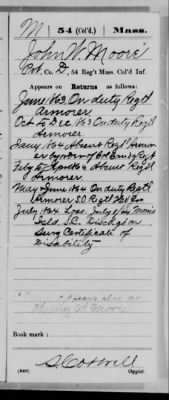 M | 54 (Col'd.) | Mass.
John W. Moore
Pvt., Co. D, 54 Reg't Mass. Col'd Inf.
Appears on Returns as follows:
June 1863. On duty Regtl
Armorer
Oct to Dec 1863 On duty Regtl
Armorer
Jany 1864 Absent Regtl Armor
er by order of Col Comdg Regt
Feby to 1864 Absent Regtl
Armorer
May & June 1864 On duty Regtl
Armorer S.O. Regtl
July 1864 Loss July 1864 Morris
Isld. S.C. Disch'g'd on
Surg Certificate of
Disability
Appears also as
Henry W. Moore
Book mark:
S. Colwell
Copyist.